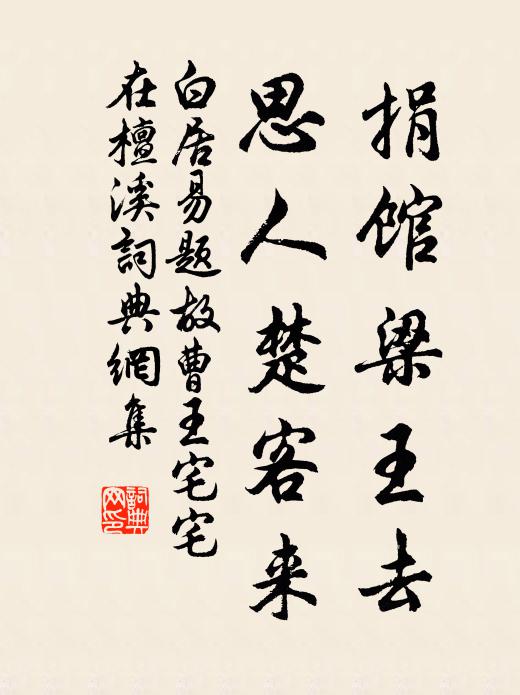 捐馆梁王去
思人楚客来
白居易题故曹王宅宅
在檀溪詞典網集
詞典
网印